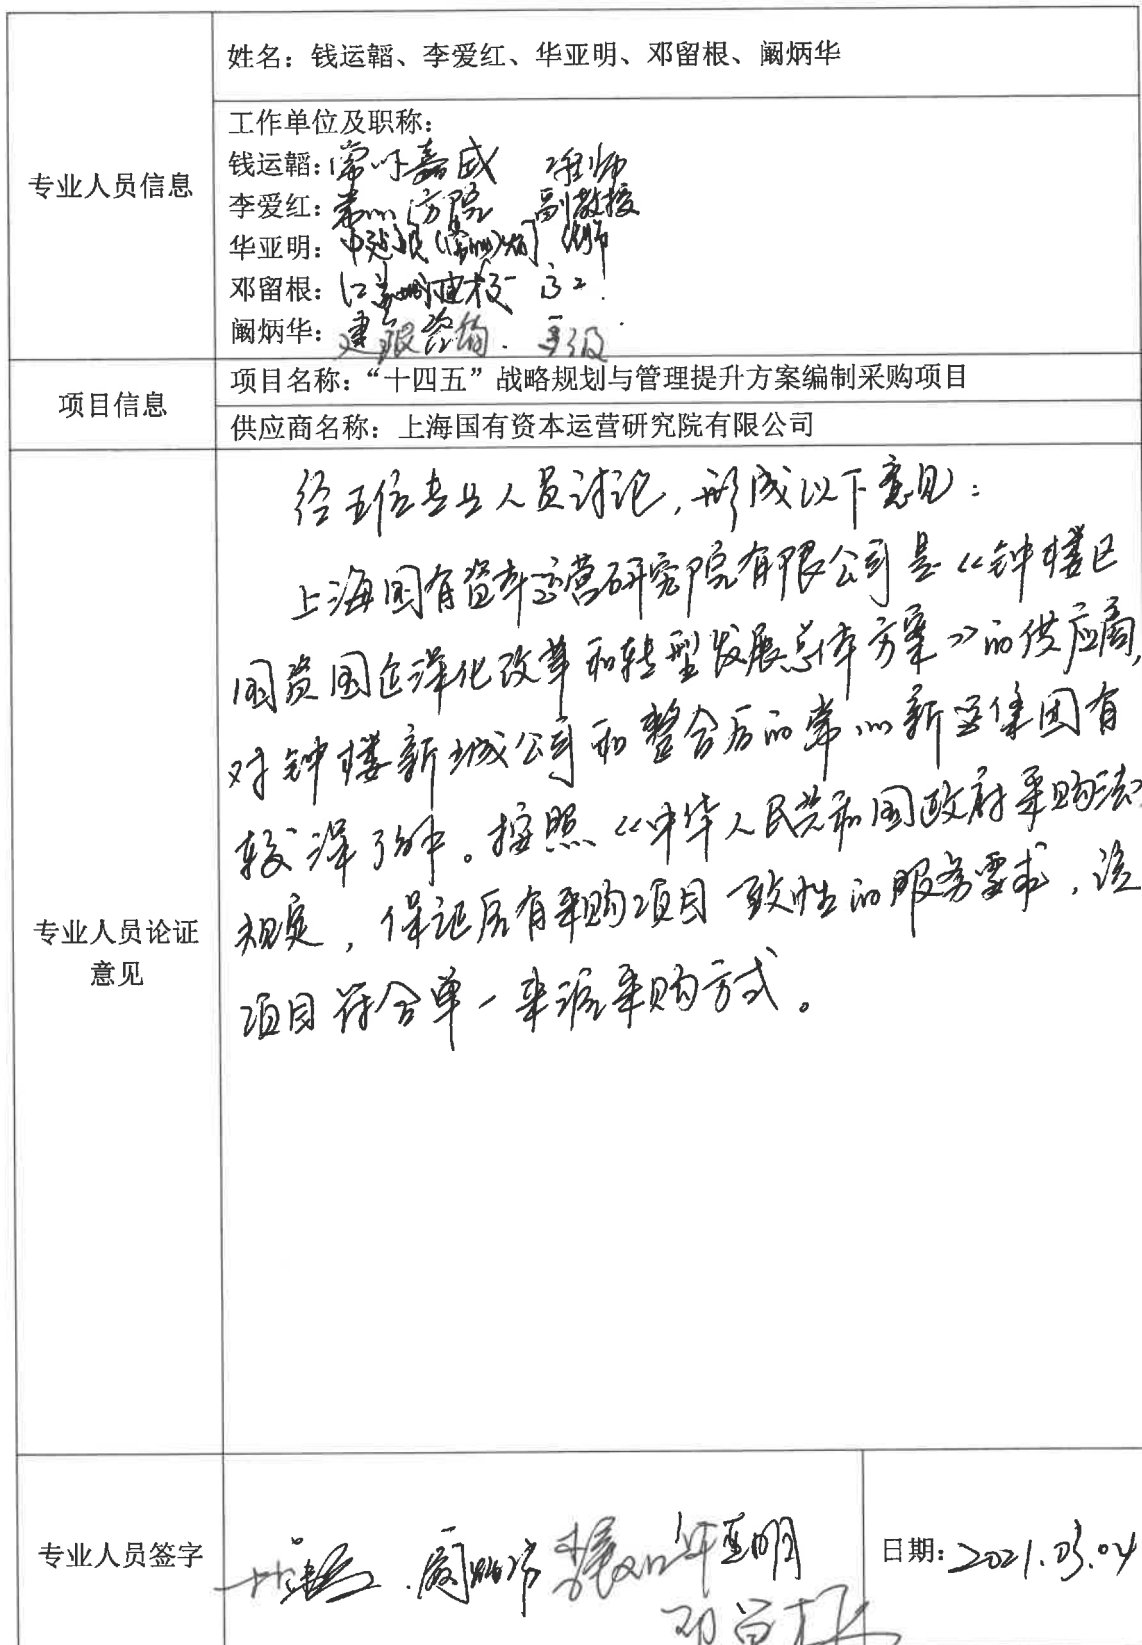 姓名：钱运韬、李爱红、华亚明、邓留根、阚炳华
工作单位及职称：
钱运韬：常州嘉成
李爱红：常州 副教授
华亚明：
邓留根：高工
阚炳华：高级
专业人员信息
项目信息
项目名称：“十四五”战略规划与管理提升方案编制采购项目
供应商名称：上海国有资本运营研究院有限公司
经五位专业人员讨论，形成以下意见：
上海国有资本运营研究院有限公司是《钟楼区
国资国企深化改革和转型发展总体方案》的供应商，
对钟楼新城公司和整合后的常州新运集团有
较深了解。按照《中华人民共和国政府采购法》
规定，保证原有采购项目一致性的服务要求，该
项目符合单一来源采购方式。
专业人员论证
意见
专业人员签字
阚炳华 李爱红 华亚明
邓留根
日期：2021.03.04